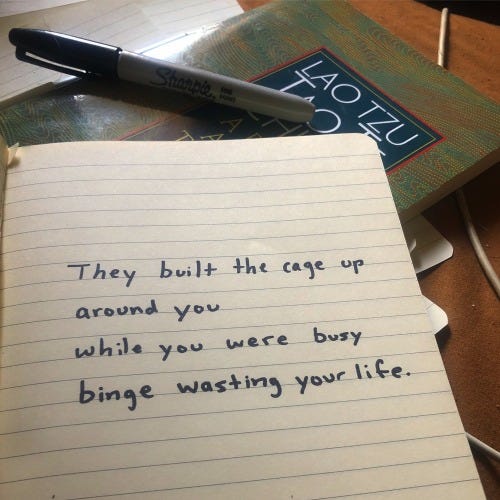 Sharpie.
LAO TZU
They built the cage up
around you
while you were busy
binge wasting your life.